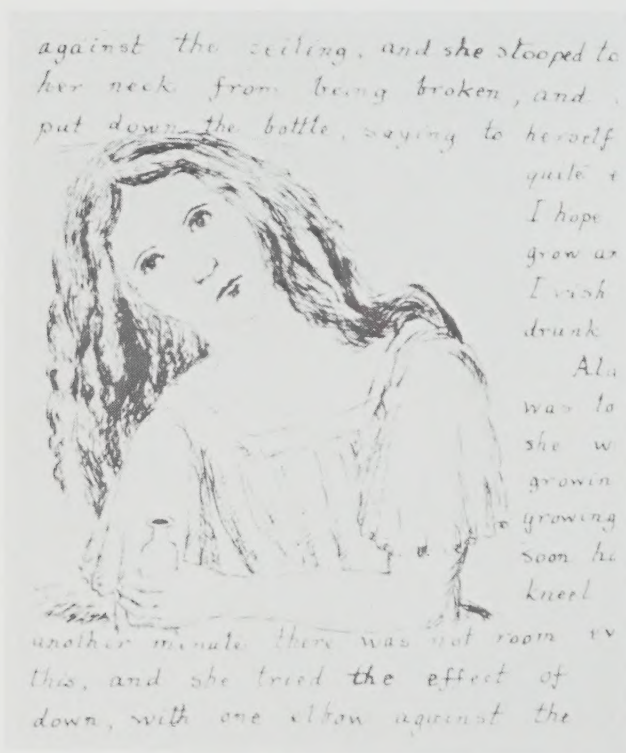 against the ceiling, and she stooped to
her neck from being broken, and
put down the bottle, saying to herself
quite e
I hope
grow an
I wish
drunk
Ala
was to
she w
growin
growing
soon ha
kneel
another minute there was not room ev
this, and she tried the effect of
down, with one elbow against the